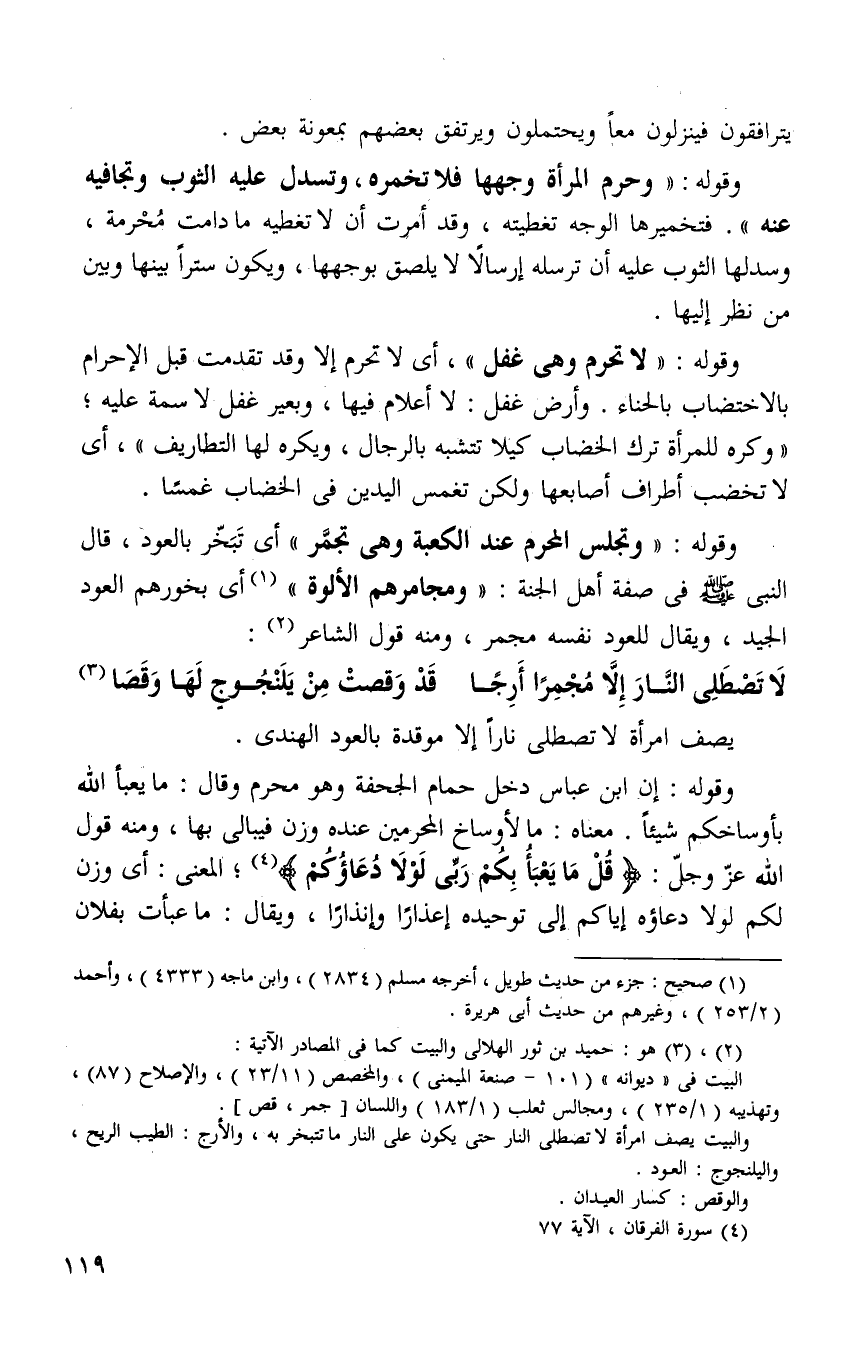 يترافقون فينزلون معاً ويحتملون ويرتفق بعضهم بمعونة بعض .
وقوله : « وحرم المرأة وجهها فلا تخمره ، وتسدل عليه الثوب وتجافيه
عنه » . فتخميرها الوجه تغطيته ، وقد أمرت أن لا تغطيه ما دامت مُحْرمة ،
وسدلها الثوب عليه أن ترسله إرسالًا لا يلصق بوجهها ، ويكون ستراً بينها وبين
من نظر إليها .
وقوله : « لا تحرم وهى غفل » ، أى لا تحرم إلا وقد تقدمت قبل الإحرام
بالاختضاب بالحناء . وأرض غفل : لا أعلام فيها ، وبعير غفل لا سمة عليه ؛
« وكره للمرأة ترك الخضاب كيلا تتشبه بالرجال ، ويكره لها التطاريف » ، أى
لا تخضب أطراف أصابعها ولكن تغمس اليدين فى الخضاب غمسًا .
وقوله : « وتجلس المحرم عند الكعبة وهى تجمَّر » أى تَبَخّر بالعود ، قال
النبى ﷺ فى صفة أهل الجنة : « ومجامرهم الألوة » (١) أى بخورهم العود
الجيد ، ويقال للعود نفسه مجمر ، ومنه قول الشاعر (٢) :
لَا تَصْطَلِى النَّـارَ إِلَّا مُجْمِرًا أَرِجًـا قَدْ وَقصتْ مِنْ يَلَنْجُـوجٍ لَهَـا وَقَصَا (٣)
يصف امرأة لا تصطلى ناراً إلا موقدة بالعود الهندى .
وقوله : إن ابن عباس دخل حمام الجحفة وهو محرم وقال : ما يعبأ الله
بأوساخكم شيئاً . معناه : ما لأوساخ المحرمين عنده وزن فيبالى بها ، ومنه قول
الله عزّ وجلّ : ﴿ قُلْ مَا يَعْبَأُ بِكُمْ رَبِّى لَوْلَا دُعَاؤُكُمْ ﴾ (٤) ؛ المعنى : أى وزن
لكم لولا دعاؤه إياكم إلى توحيده إعذارًا وإنذارًا ، ويقال : ما عبأت بفلان
(١) صحيح : جزء من حديث طويل ، أخرجه مسلم ( ٢٨٣٤ ) ، وابن ماجه ( ٤٣٣٣ ) ، وأحمد
( ٢٥٣/٢ ) ، وغيرهم من حديث أبى هريرة .
(٢) ، (٣) هو : حميد بن ثور الهلالى والبيت كما فى المصادر الآتية :
البيت فى « ديوانه » ( ١٠١ - صنعة الميمنى ) ، والمخصص ( ٢٣/١١ ) ، والإصلاح ( ٨٧ ) ،
وتهذيبه ( ٢٣٥/١ ) ، ومجالس ثعلب ( ١٨٣/١ ) واللسان [ جمر ، قص ] .
والبيت يصف امرأة لا تصطلى النار حتى يكون على النار ما تتبخر به ، والأرج : الطيب الريح ،
واليلنجوج : العود .
والوقص : كسار العيدان .
(٤) سورة الفرقان ، الآية ٧٧
١١٩